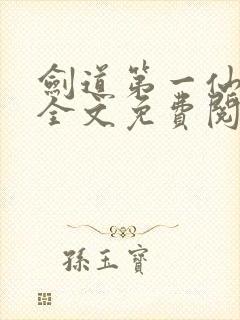 劍道第一仙
全文免費閱
孫玉寶